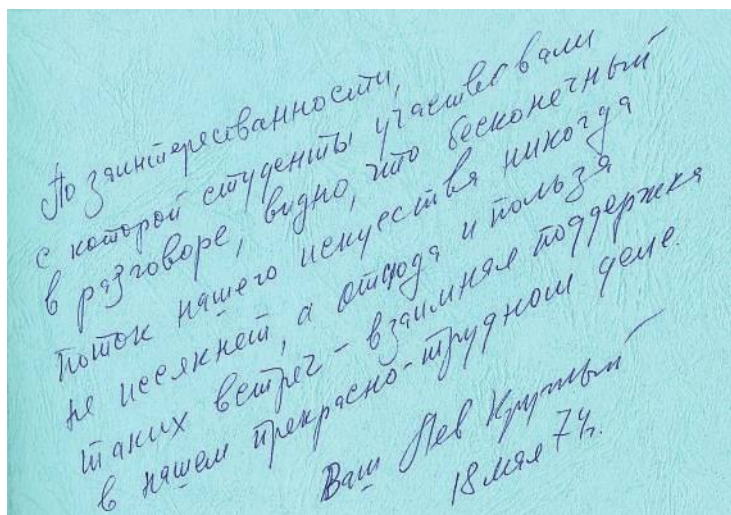 По заинтересованности,
с которой студенты участвовали
в разговоре, видно, что бесконечный
поток нашего искусства никогда
не иссякнет, а отсюда и польза
таких встреч – взаимная поддержка
в нашем прекрасно-трудном деле.
Ваш Лев Круглый
18 мая 74г.